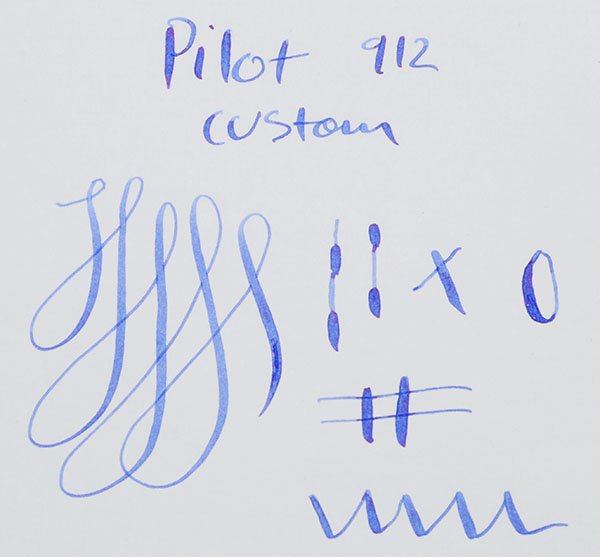 Pilot 912
custom